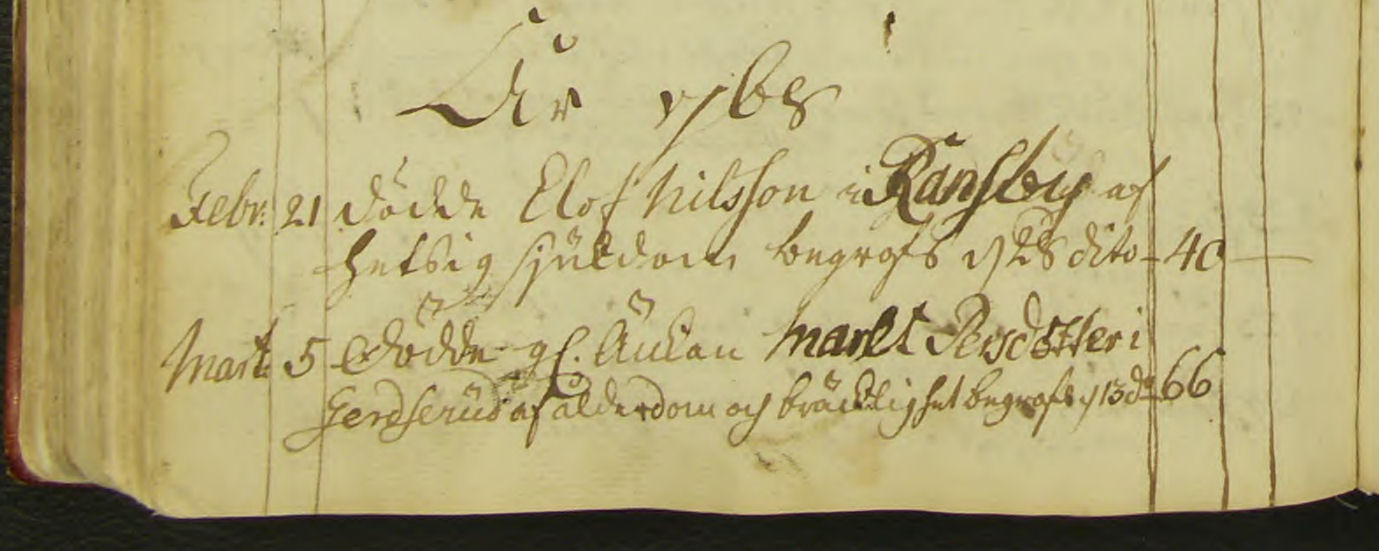 År 1768
Febr: 21 dödde Elof Nilsson i Ransby af
hetsig siukdom begrofs d 28 dito - 40
Mart: 5 dödde gl. Änkan Marit Persdotter i
Gerdserud af ålderdom och bräcklighet begrofs d 13 do 66